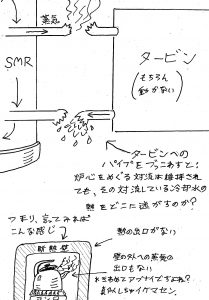 蒸気
SMR
タービン
(もちろん
動かない)
タービンへの
パイプをつっこわすと:
炉心をめぐる対流は維持され
ても、その対流している冷却水の
熱をどこに逃がすのか?
つまり、言ってみれば
こんな感じ
熱の出口がない
断熱壁
壁の外への蒸気の
出口もない
マネしちゃイケマセン。